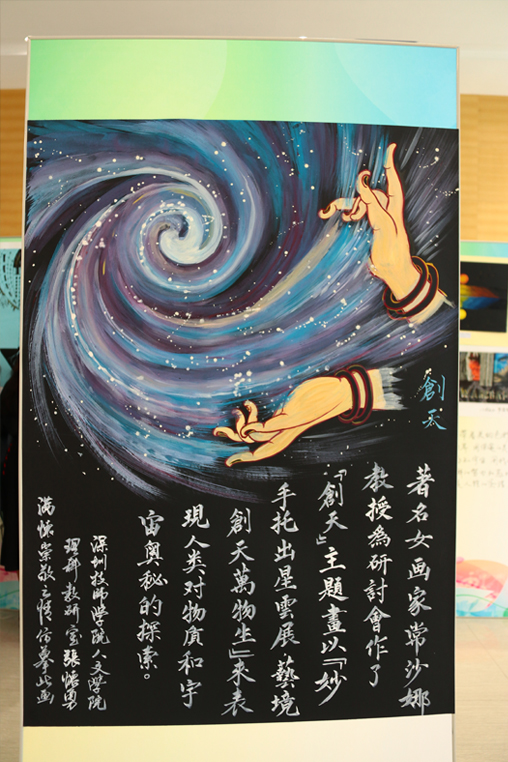 創天
著名女画家常沙娜
教授為研討會作了
「創天」主題畫以「妙
手托出星雲展 藝境
創天萬物生」来表
現人类对物质和宇
宙奥秘的探索。
深圳技師学院人文学院
理科教研室張德勇
满懷崇敬之情仿摹此画